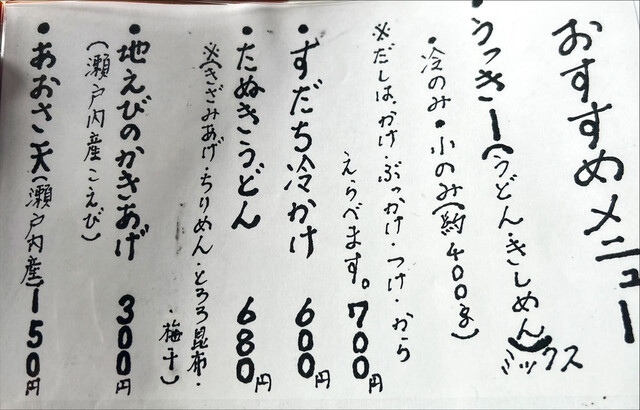 おすすめメニュー
・うっきー(うどん・きしめん)ミックス
・冷のみ・小のみ(約400g)
※だしは、かけ・ぶっかけ・つけ・から
えらべます。700円
・すだち冷かけ 600円
・たぬきうどん 680円
※(きざみあげ・ちりめん・とろろ昆布・
・梅干)
・地えびのかきあげ 300円
(瀬戸内産こえび)
・あおさ天(瀬戸内産)150円